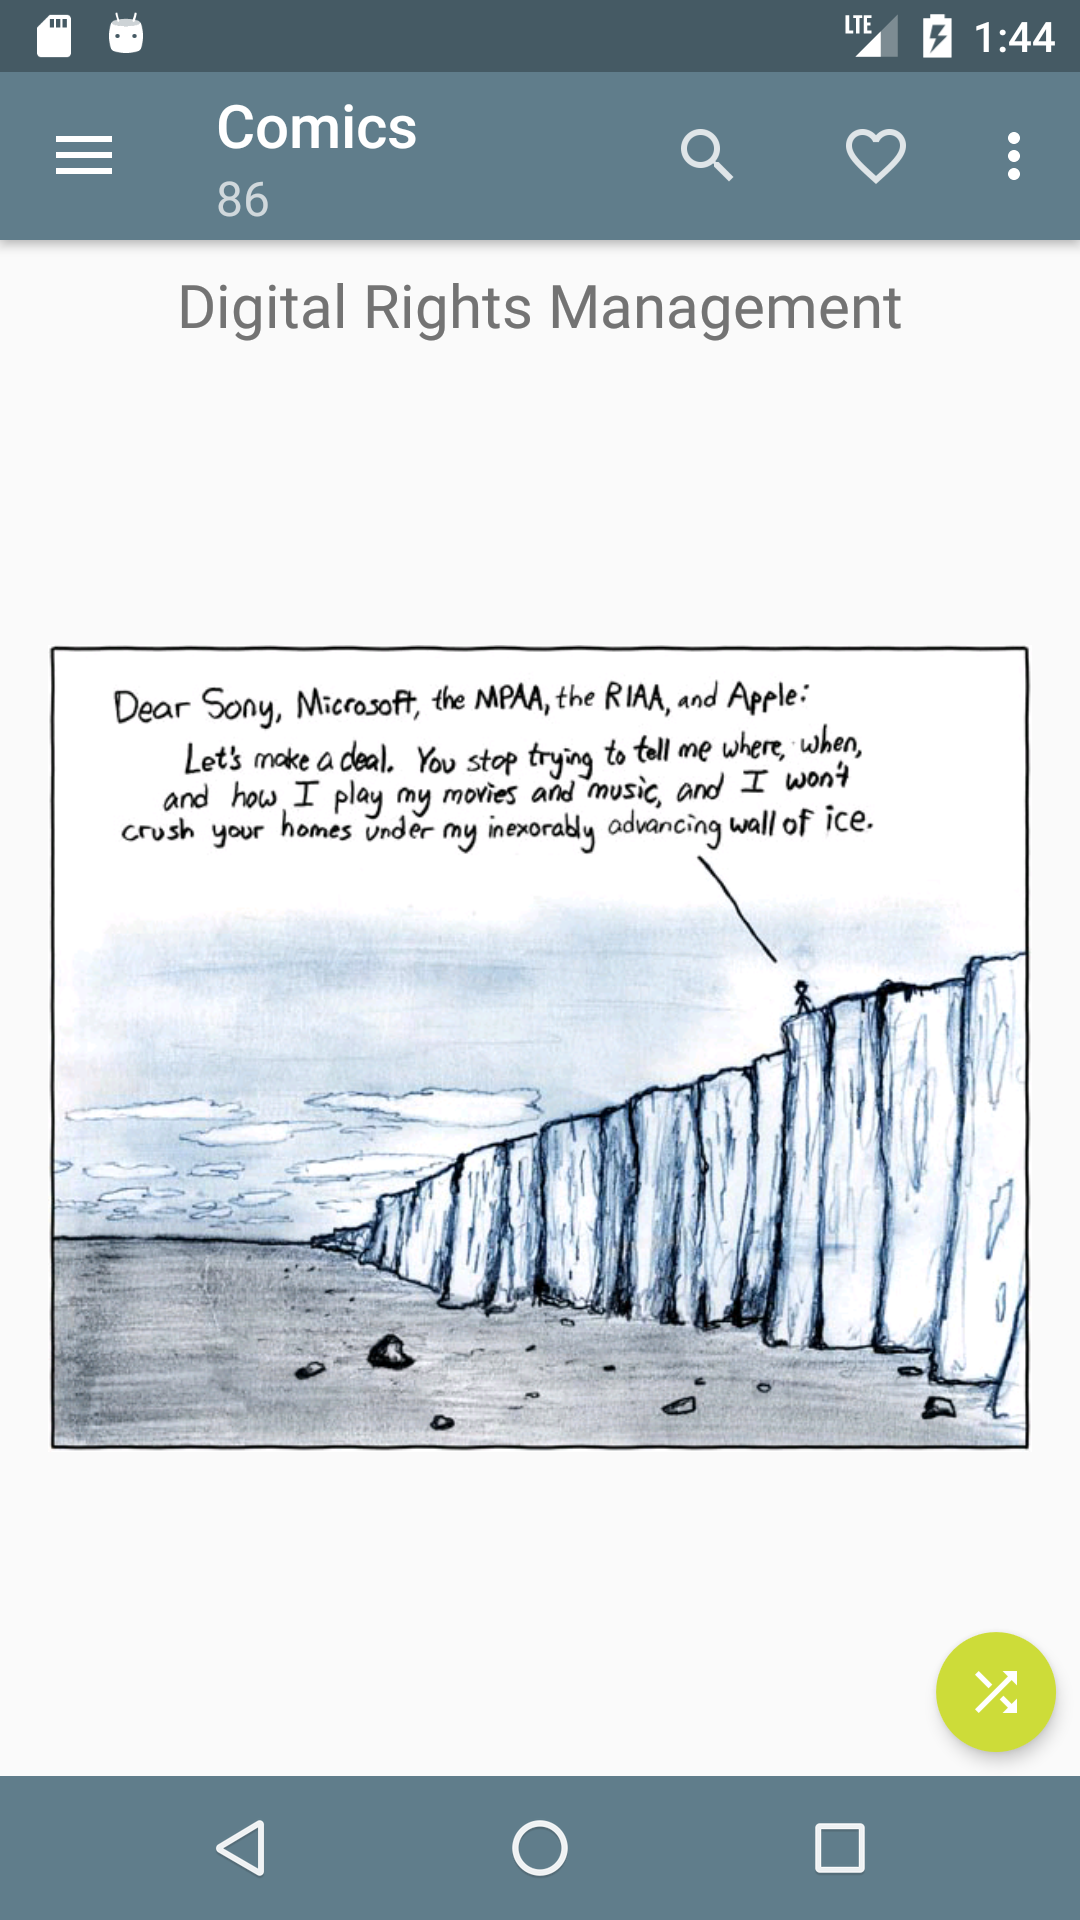 LTE 1:44
Comics
86
Digital Rights Management
Dear Sony, Microsoft, the MPAA, the RIAA, and Apple:
Let's make a deal. You stop trying to tell me where, when,
and how I play my movies and music, and I won't
crush your homes under my inexorably advancing wall of ice.